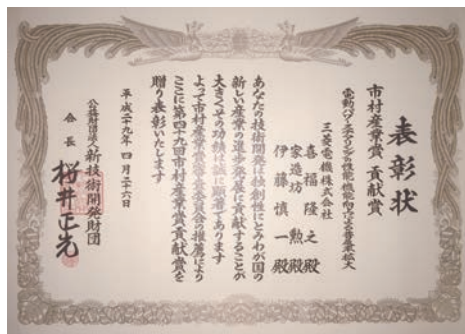 表彰状
市村産業賞 貢献賞
電動パワーステアリングの性能・機能向上による事業拡大
三菱電機株式会社
喜福隆之殿
家造坊勲殿
伊藤慎一殿
あなたの技術開発は独創性にとみわが国の
新しい産業の進歩発展に貢献することが
大きくその功績は誠に顕著であります
よって市村産業賞審査委員会の推薦により
ここに第四十九回市村産業賞貢献賞を
贈り表彰いたします
平成二十九年四月二十六日
公益財団法人新技術開発財団
会長 桜井正光